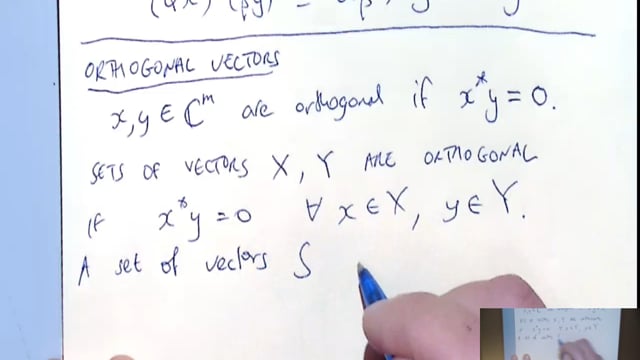 ORTHOGONAL VECTORS
x, y ∈ ℂᵐ are orthogonal if x*y = 0.
SETS OF VECTORS X, Y ARE ORTHOGONAL
IF x*y = 0 ∀ x ∈ X, y ∈ Y.
A set of vectors S